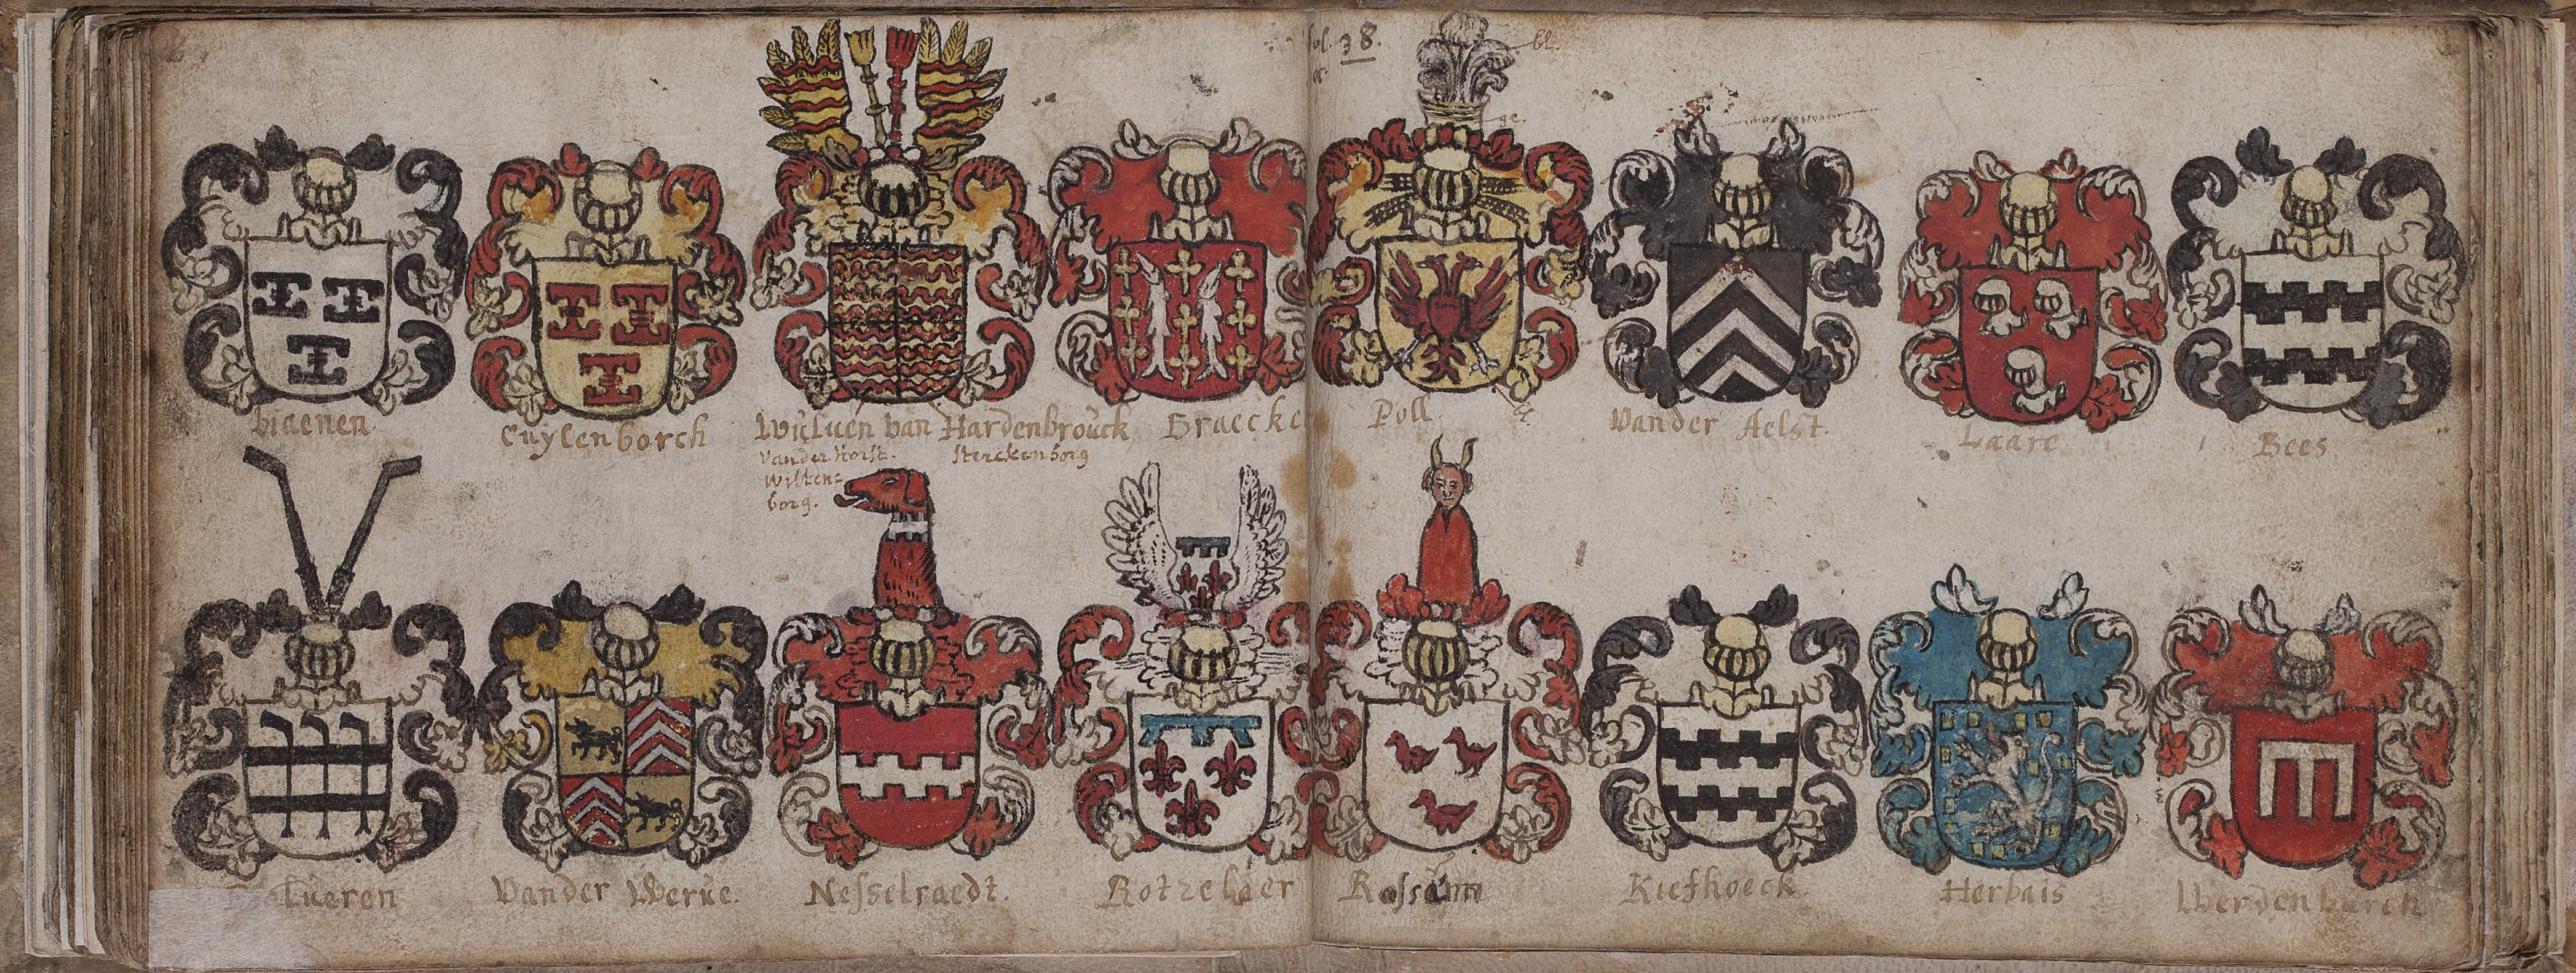 fol. 38.
bl.
ge.
vianen
Cuylenborch
Wuluen van Hardenbrouck
vander Horst. Sterckenborg
wilten=
borg.
Graecke
Poll.
Vander Aelst.
Laare
Bees
Lueren
Vander Werue.
Nesselraedt.
Rotzelaer
Rossem
Kiefhoeck.
Herbais
Werdenburch